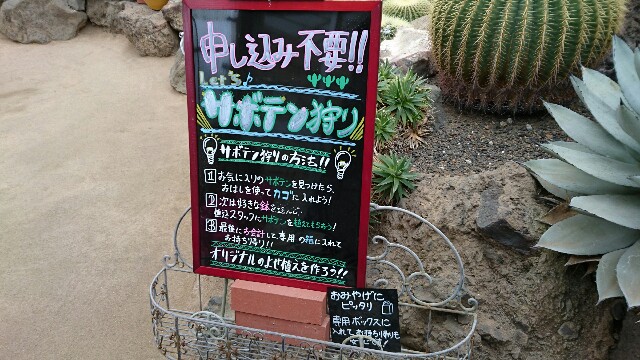 申し込み不要!!
Let's♪
サボテン狩り
サボテン狩りの方法!!
1 お気に入りのサボテンを見つけたら、
おはしを使ってカゴに入れよう!
2 次は好きな鉢を選んで、
植込スタッフにサボテンを植えてもらおう!
3 最後にお会計して専用の箱に入れて
お持ち帰り!!
オリジナルのよせ植えを作ろう!!
おみやげに
ピッタリ
専用ボックスに
入れてお持ち帰りも